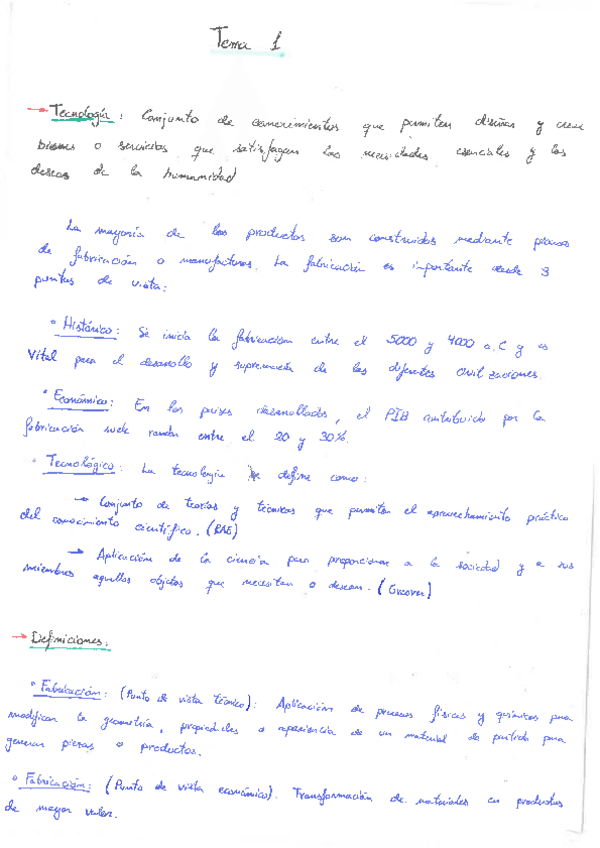 Tema 1
→ Tecnología: Conjunto de conocimientos que permiten diseñar y crear
bienes o servicios que satisfagan las necesidades esenciales y los
deseos de la humanidad
La mayoría de los productos son construidos mediante procesos
de fabricación o manufacturas. La fabricación es importante desde 3
puntos de vista:
• Histórico: Se inicia la fabricación entre el 5000 y 4000 a.C y es
Vital para el desarrollo y supremacía de las diferentes civilizaciones.
• Económico: En los países desarrollados, el PIB contribuido por la
fabricación suele rondar entre el 20 y 30%.
• Tecnológico: La tecnología se define como:
→ Conjunto de teorías y técnicas que permiten el aprovechamiento práctico
del conocimiento científico. (RAE)
→ Aplicación de la ciencia para proporcionar a la sociedad y a sus
miembros aquellos objetos que necesitan o desean. (Groover)
→ Definiciones.
• Fabricación: (Punto de vista técnico): Aplicación de procesos físicos y químicos para
modificar la geometría, propiedades o apariencia de un material de partida para
generar piezas o productos.
• Fabricación: (Punto de vista económico). Transformación de materiales en productos
de mayor valor.